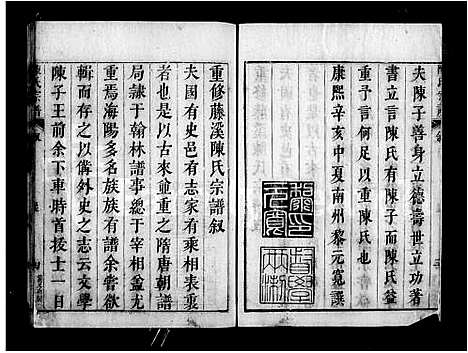 夫陳子善身立德壽世立功著
書立言陳氏有陳子而陳氏益
重予言何足以重陳氏也
康熙辛亥中夏南州黎元寬譔
重修藤溪陳氏宗譜叙
夫國有史邑有志家有乘相表裏
者也是以古來𠅤重之隋唐朝譜
局隷于翰林譜事總于宰相葢尤
重焉海陽多名族族有譜余嘗欲
輯而存之以備外史之志云文學
陳子王前余下車時首接士一日